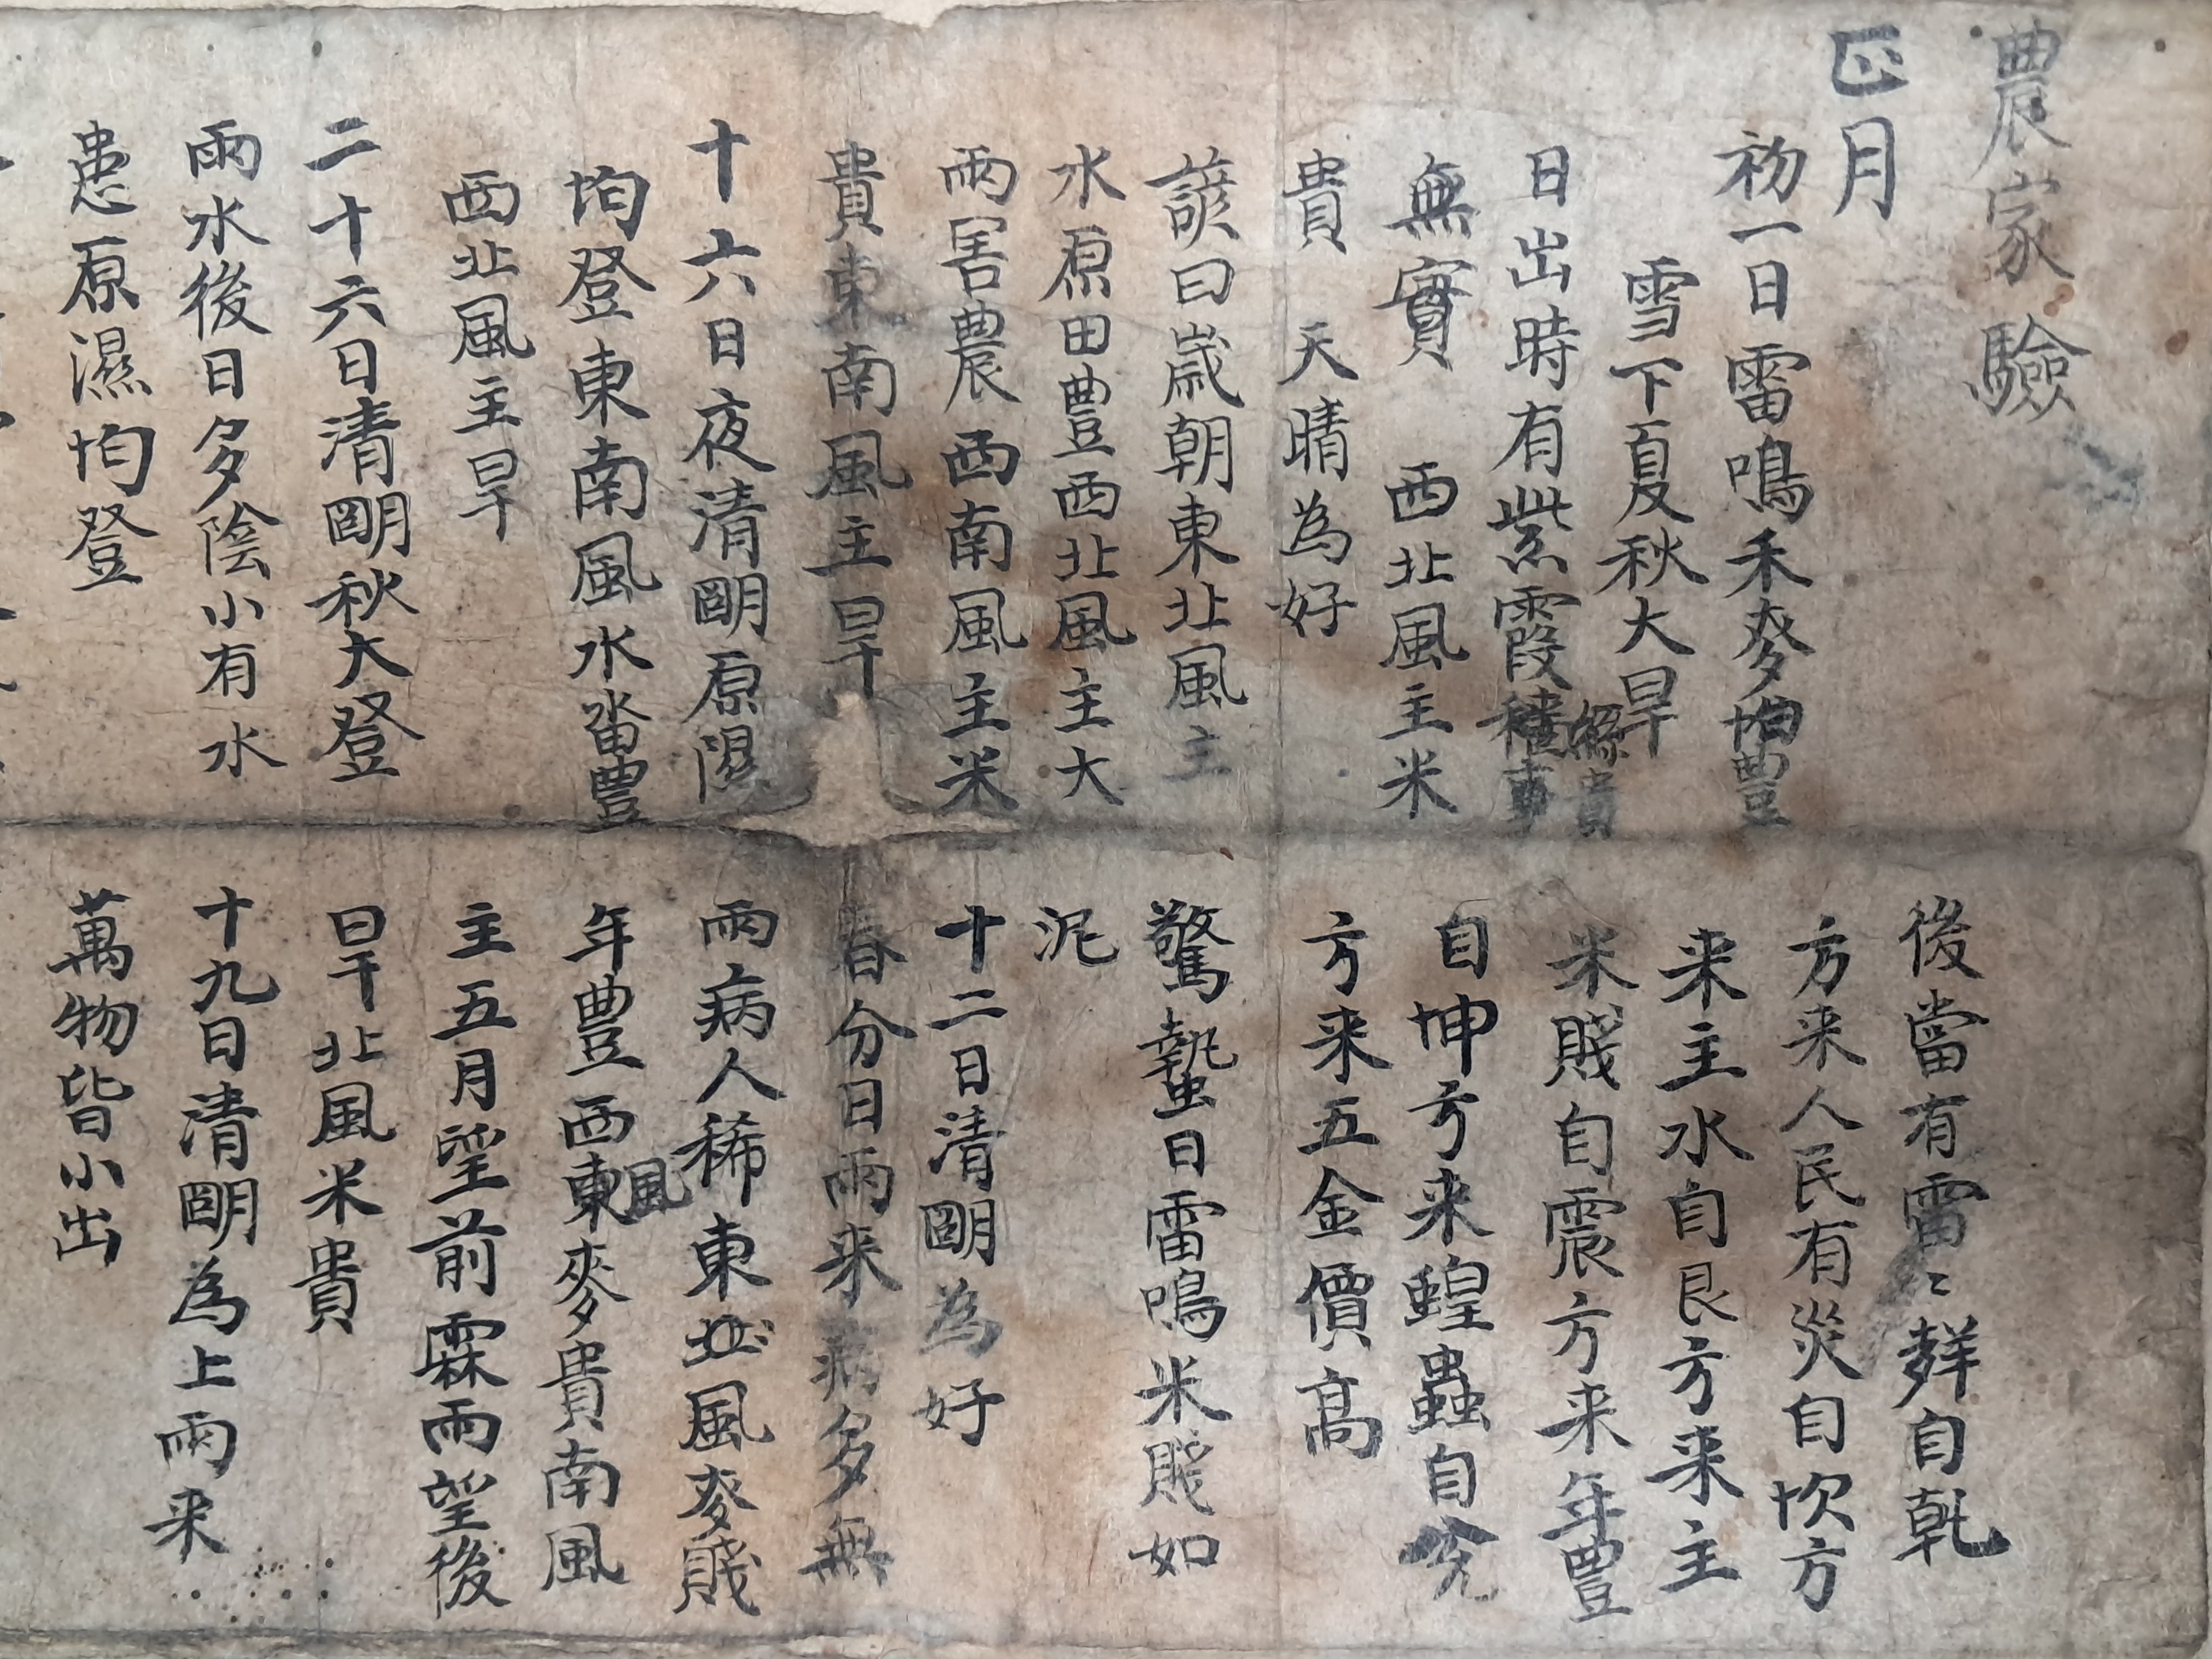 農家驗
正月
初一日雷鳴禾麥均豊
雪下夏秋大旱
日出時有紫霞穫事
無實 西北風主米
貴 天晴為好
諺曰歲朝東北風主
水原田豊西北風主大
雨害農西南風主米
貴東南風主旱
十六日夜清明原隰
均登東南風水畓豊
西北風主旱
二十六日清明秋大登
雨水後日多陰小有水
患原濕均登
後當有雷〻聲自乾
方来人民有災自坎方
来主水自艮方来主
米賤自震方来年豊
自坤方来蝗蟲自兌
方来五金價高
驚蟄日雷鳴米賤如
泥
十二日清明為好
春分日雨来病多無
雨病人稀東北風麥賤
年豊西風東麥貴南風
主五月望前霖雨望後
旱北風米貴
十九日清明為上雨来
萬物皆小出